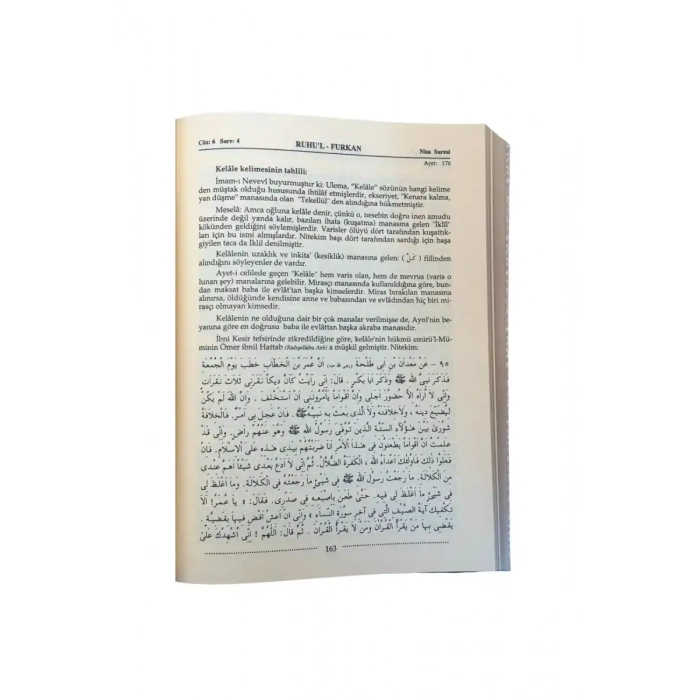 Cüz: 6 Sure: 4 RUHU'L - FURKAN Nisa Suresi
Ayet: 176
Kelâle kelimesinin tahlili:
İmam-ı Nevevî buyurmuştur ki: Ulema, "Kelâle" sözünün hangi kelime
den müştak olduğu hususunda ihtilâf etmişlerdir, ekseriyet, "Kenara kalma,
yan düşme" manasında olan "Tekellül" den alındığına hükmetmiştir.
Meselâ: Amca oğluna kelâle denir, çünkü o, nesebin doğru inen amudu
üzerinde değil yanda kalır, bazıları ihata (kuşatma) manasına gelen "İklîl"
kökünden geldiğini söylemişlerdir. Varisler ölüyü dört tarafından kuşattık-
ları için bu ismi almışlardır. Nitekim başı dört tarafından sardığı için başa
giyilen taca da İklîl denilmiştir.
Kelâlenin uzaklık ve inkita' (kesiklik) manasına gelen: ( كَلَّ ) fiilinden
alındığını söyleyenler de vardır.
Ayet-i celilede geçen "Kelâle" hem varis olan, hem de mevrus (varis o
lunan şey) manalarına gelebilir. Mirasçı manasında kullanıldığına göre, bun-
dan maksat baba ile evlât'tan başka kimselerdir. Miras bırakılan manasına
alınırsa, öldüğünde kendisine anne ve babasından ve evlâdından hiç biri mi-
rasçı olmayan kimsedir.
Kelâlenin ne olduğuna dair bir çok manalar verilmişse de, Aynî'nin be-
yanına göre en doğrusu baba ile evlâttan başka akraba manasıdır.
İbni Kesir tefsirinde zikredildiğine göre, kelâle'nin hükmü emirü'l-Mü-
minin Ömer ibnil Hattab (Radıyellâhu Anh) a müşkil gelmiştir. Nitekim:
٩٥ - عَنْ مَعْدَانَ بْنِ اَبِى طَلْحَةَ اَنَّ عُمَرَ بْنَ الْخَطَّابِ خَطَبَ يَوْمَ الْجُمُعَةِ
فَذَكَرَ نَبِىَّ اللهِ ﷺ وَذَكَرَ اَبَا بَكْرٍ. قَالَ: اِنِّى رَاَيْتُ كَاَنَّ دِيكًا نَقَرَنِى ثَلَاثَ نَقَرَاتٍ
وَاِنِّى لَا اُرَاهُ اِلَّا حُضُورَ اَجَلِى وَاِنَّ اَقْوَامًا يَأْمُرُونَنِى اَنْ اَسْتَخْلِفَ. وَاِنَّ اللهَ لَمْ يَكُنْ
لِيُضَيِّعَ دِينَهُ ، وَلَاخِلَافَتَهُ وَلَا الَّذِى بَعَثَ بِهِ نَبِيَّهُ ﷺ. فَاِنْ عَجِلَ بِى اَمْرٌ. فَالْخِلَافَةُ
شُورَى بَيْنَ هٰؤُلَاءِ السِّتَّةِ الَّذِينَ تُوُفِّىَ رَسُولُ اللهِ ﷺ وَهُوَ عَنْهُمْ رَاضٍ. وَاِنِّى قَدْ
عَلِمْتُ اَنَّ اَقْوَامًا يَطْعَنُونَ فِى هٰذَا الْاَمْرِ اَنَا ضَرَبْتُهُمْ بِيَدِى هٰذِهِ عَلَى الْاِسْلَامِ. فَاِنْ
فَعَلُوا ذٰلِكَ فَاُولٰئِكَ اَعْدَاءُ اللهِ ، الْكَفَرَةُ الضُّلَّالُ. ثُمَّ اِنِّى لَا اَدَعُ بَعْدِى شَيْئًا اَهَمَّ عِنْدِى
مِنَ الْكَلَالَةِ. مَا رَاجَعْتُ رَسُولَ اللهِ ﷺ فِى شَيْئٍ مَا رَاجَعْتُهُ فِى الْكَلَالَةِ. وَمَا اَغْلَظَ لِى
فِى شَيْئٍ مَا اَغْلَظَ لِى فِيهِ. حَتَّى طَعَنَ بِاِصْبَعِهِ فِى صَدْرِى. فَقَالَ: « يَا عُمَرُ! اَلَا
تَكْفِيكَ آيَةُ الصَّيْفِ الَّتِى فِى آخِرِ سُورَةِ النِّسَاءِ » وَاِنِّى اِنْ اَعِشْ اَقْضِ فِيهَا بِقَضِيَّةٍ.
يَقْضِى بِهَا مَنْ يَقْرَأُ الْقُرْآنَ وَمَنْ لَا يَقْرَأُ الْقُرْآنَ. ثُمَّ قَالَ: اَللّٰهُمَّ ! اِنِّى اُشْهِدُكَ عَلَى
163